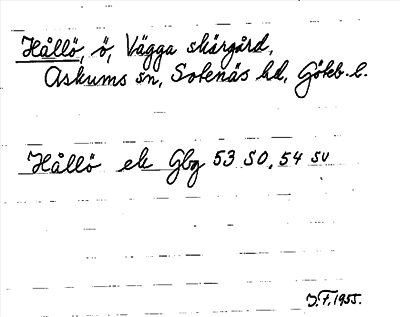 Hållö, ö, Vägga skärgård,
Askums sn, Sotenäs hd, Göteb. l.
Hållö ek Gbg 53 SO, 54 SV
J.F. 1955.